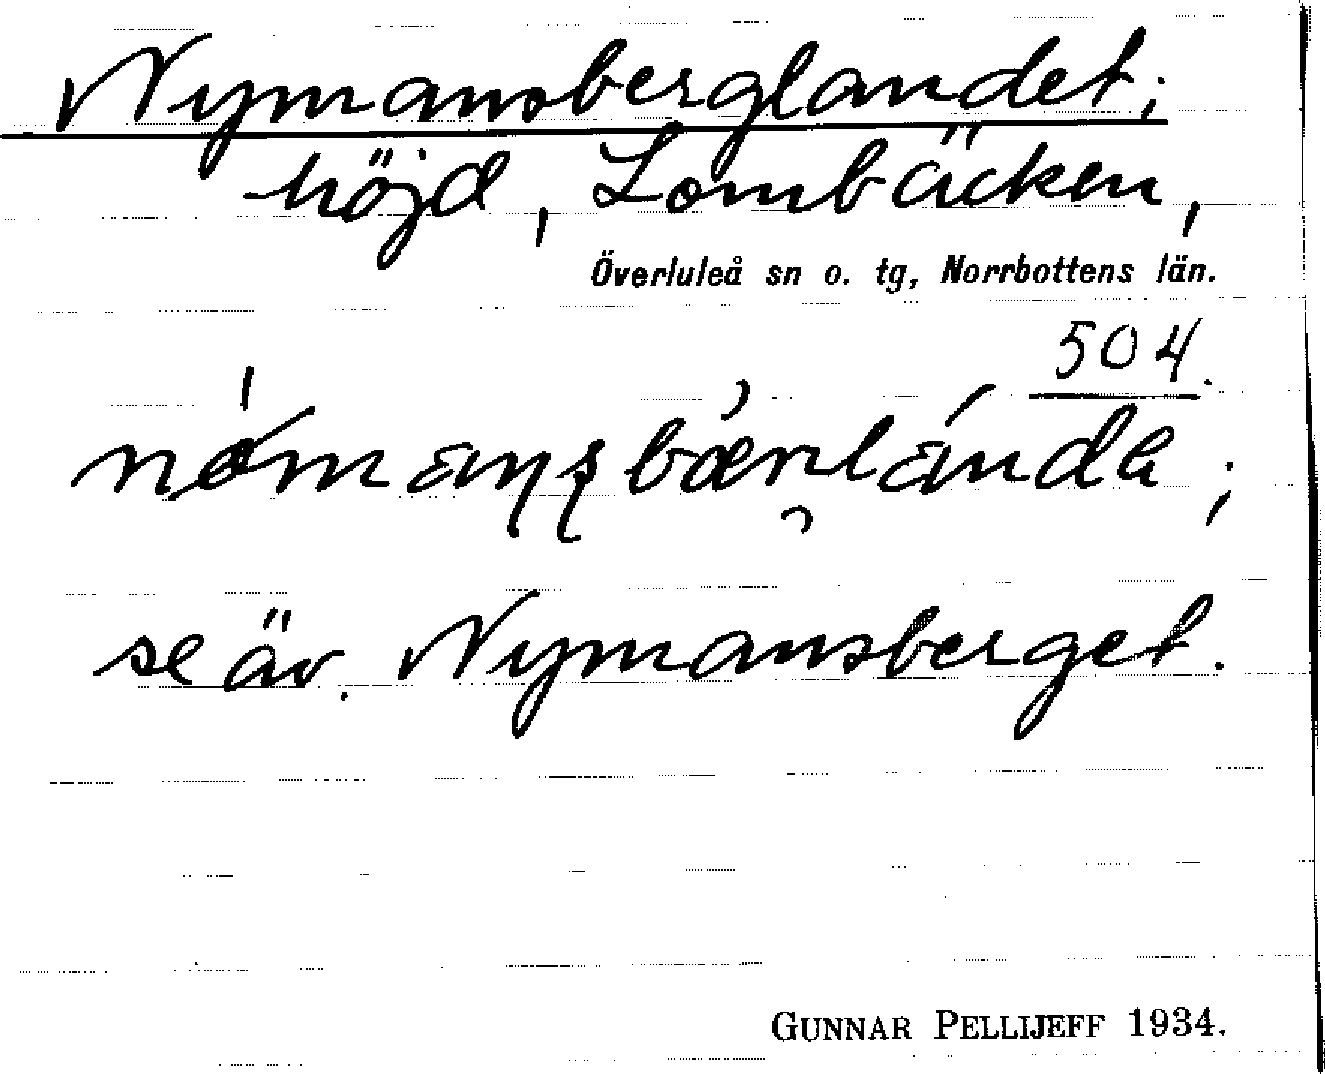 Nymansberglandet;
höjd, Lombäcken,
Överluleå sn o. tg, Norrbottens län.
504.
se äv. Nymansberget.
GUNNAR PELLIJEFF 1934.